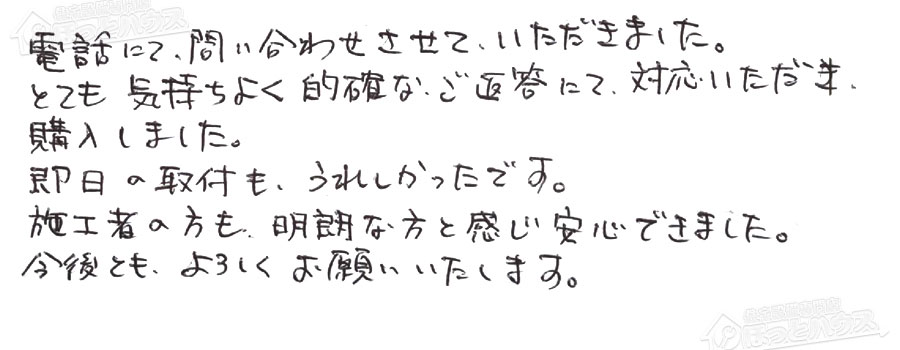 電話にて、問い合わせさせて、いただきました。
とても 気持ちよく 的確な、ご返答にて、対応いただき、
購入しました。
即日の取付も、うれしかったです。
施工者の方も、明朗な方と感じ安心できました。
今後とも、よろしくお願いいたします。
ほっとハウス
ほっとハウス